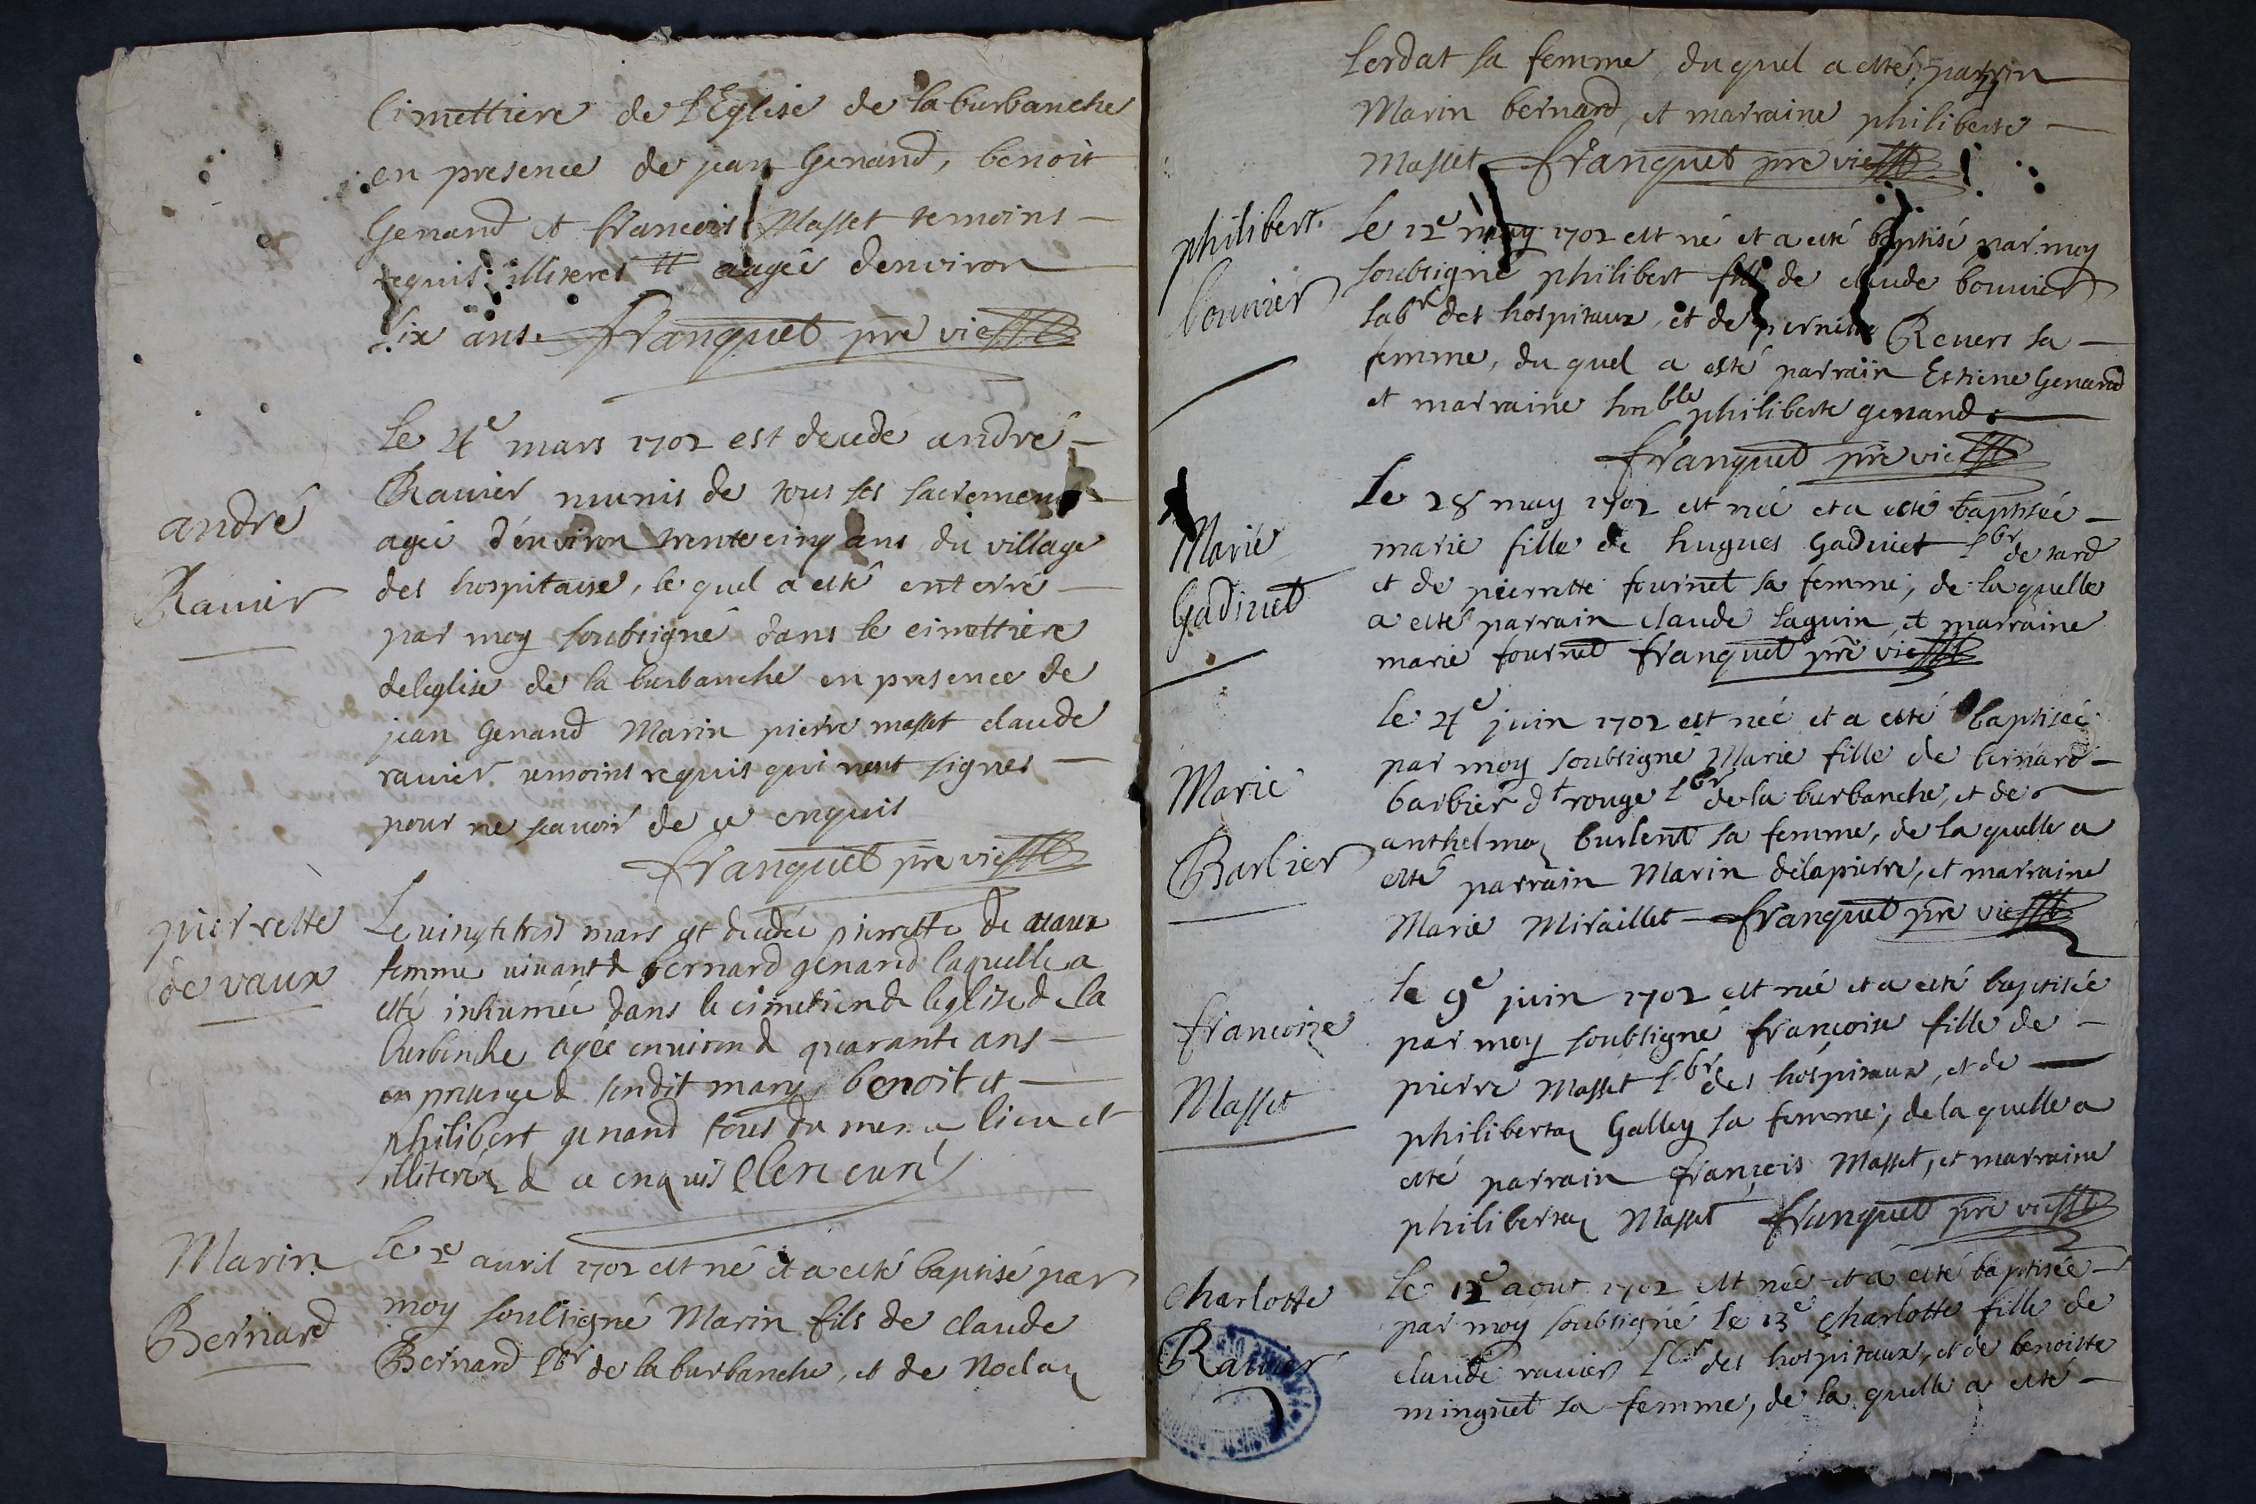 Cimettiere de l'Eglise de la burbanche
en presence de jean Genand, benoit
Genand et francois Masset temoins
requis illiteres aagée denviron
six ans. franquet pre vic
andré
Ravier
Le 4e mars 1702 est decedé andré
Ravier munis de tous ses sacremens
agée d'environ trente cinq ans du village
des hospitaux, le quel a esté enterré
par moy soubsigné dans le cimettiere
deleglise de la burbanche en presence de
jean Genand Marin pierre masset claude
ravier temoins requis qui nont signes
pour ne scavoir de ce enquis
franquet pre vic
pierrette
de vaux
Le vingt trois mars est decedée pierrette de vaux
femme vivant de bernard genand laquelle a
esté inhumée dans le cimetiere de leglize de la
burbanche agée environ de quarante ans
en presence de sondit mary, benoit et
philibert genand tous du mesme lieu et
illiteres de ce enquis Clerc curé
Marin
Bernard
Le 2e avril 1702 est né et a esté baptisé par
moy soubsigné Marin fils de claude
Bernard lbr de la burbanche, et de Noelaz
Lerdat sa femme duquel a esté parrin
Marin bernard, et marraine philiberte
Masset franquet pre vic
philibert
bouvier
Le 12e may 1702 est né et a esté baptisé par moy
soubsigné philibert fils de claude bouvier
labr des hospitaux, et de pernette Revers sa
femme, du quel a esté parrain Estiene Genand
et marraine honble philiberte genand
franquet pre vic
Marie
Gadinet
Le 28 may 1702 est née et a esté baptisée
marie fille de hugues Gadinet lbr de tard
et de pierrette fournet sa femme, de la quelle
a esté parrain claude Laguin, et marraine
marie fournet franquet pre vic
Marie
Barbier
Le 4e juin 1702 est née et a esté baptisée
par moy soubsigné Marie fille de bernard
barbier dt rouge lbr de la burbanche, et de
anthelmaz burlent sa femme, de la quelle a
esté parrain Marin delapierre, et marraine
Marie Miraillet franquet pre vic
francoize
Masset
Le 9e juin 1702 est née et a esté baptisée
par moy soubsigné francoise fille de
pierre Masset lbr des hospitaux, et de
philibertaz Galley sa femme, de la quelle a
esté parrain françois Masset, et marraine
philibertaz Masset franquet pre vic
charlotte
Ravier
Le 12e aout 1702 est née et a esté baptisée
par moy soubsigné le 13e charlotte fille de
claude ravier lbr des hospitaux, et de benoitte
minguet sa femme, de la quelle a esté